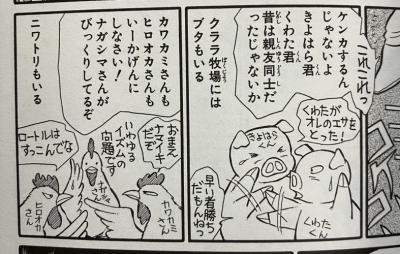 これこれっ
ケンカするん
じゃないよ
きよはら君
くわた君
昔は親友同士だ
ったじゃないか
クララ牧場には
ブタもいる
くわたが
オレのエサを
とった!
きよはら
くん
くわた
くん
早い者勝ち
だもんねっ
カワカミさんも
ヒロオカさんも
いーかげんに
しなさい!
ナガシマさんが
びっくりしてるぞ
ニワトリもいる
おまえ
ナマイキ
だぞ
いわゆる
イズムの
問題です
ロートルは
すっこんでな
カワカミ
さん
ナガシマ
さん
ヒロオカ
さん